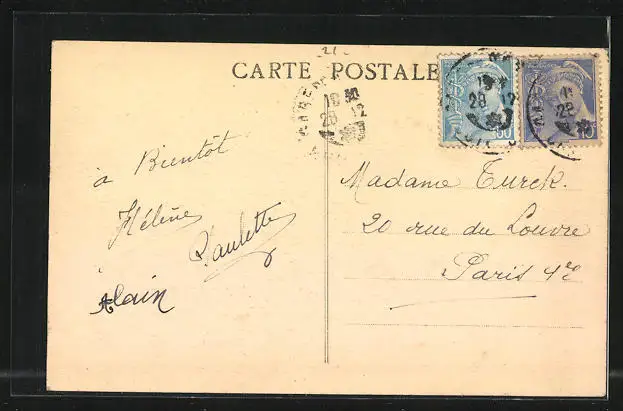 21.
CARTE POSTALE
à Bientôt
Hélène
Paulette
Alain
Madame Turck.
20 rue du Louvre
Paris 1er
28 12
28 12
28
50
10